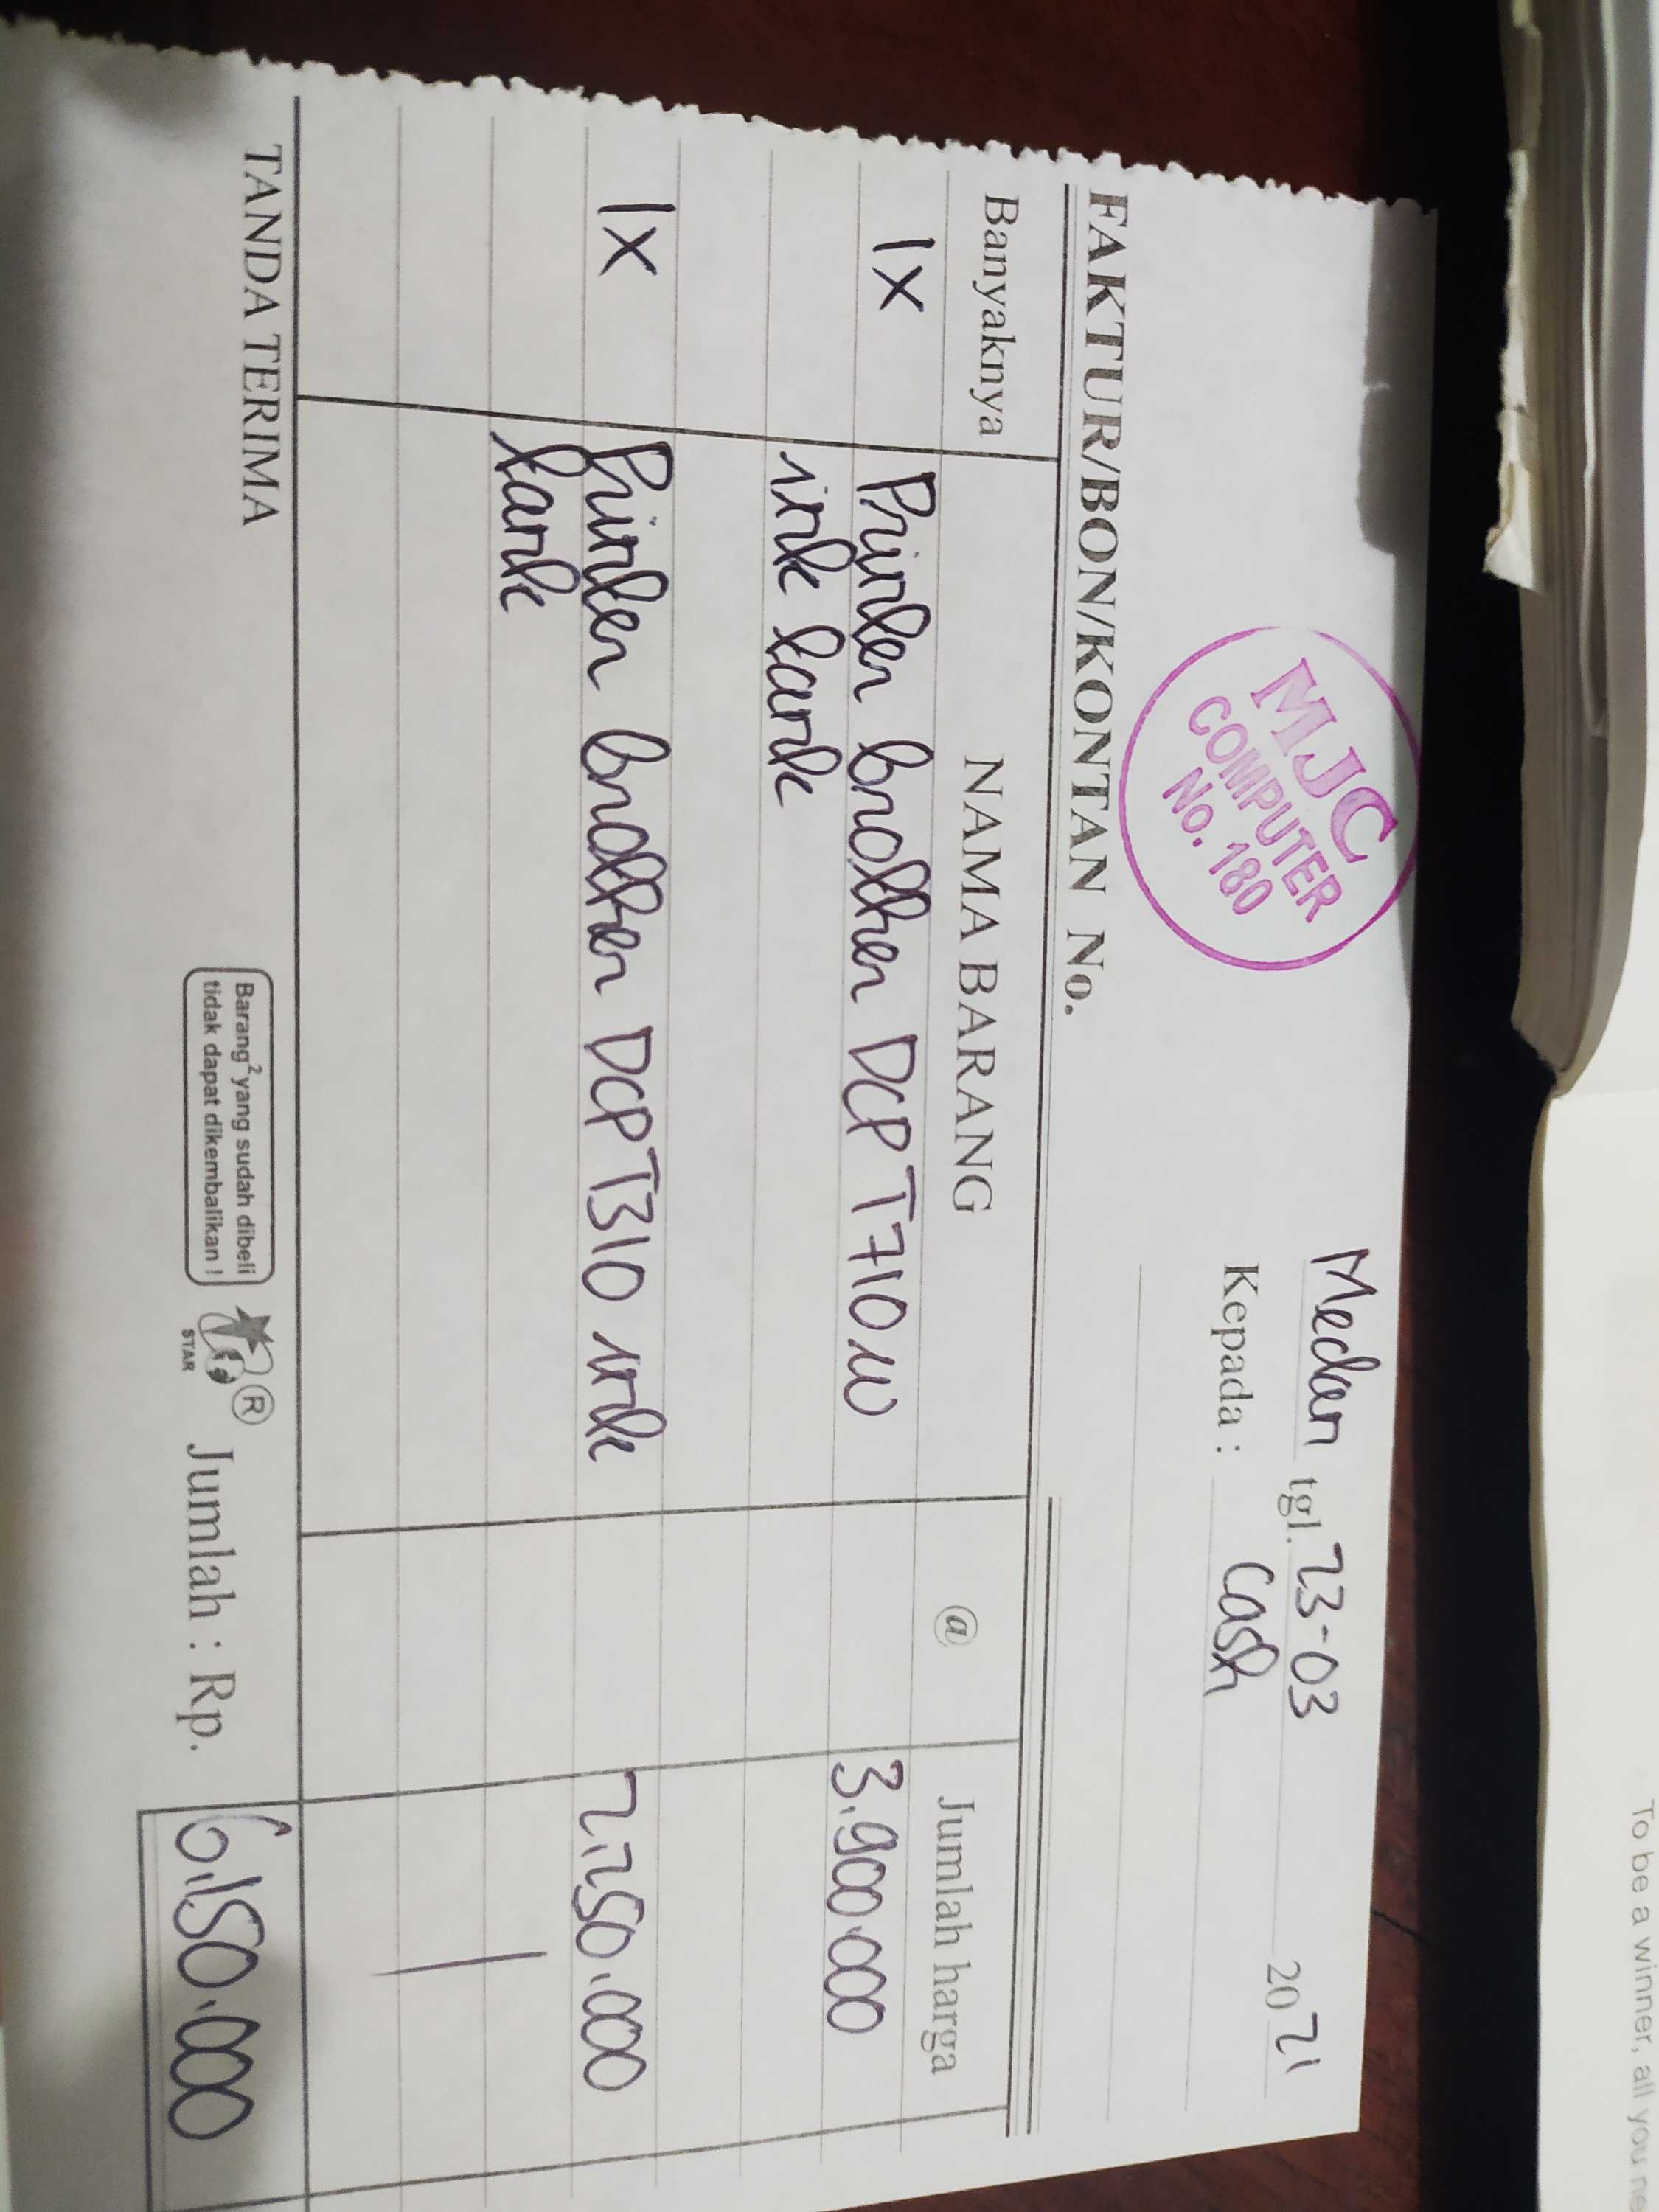 MJC
COMPUTER
No. 180
Medan tgl. 23-03 2021
Kepada : Cash
FAKTUR/BON/KONTAN No.
Banyaknya NAMA BARANG @ Jumlah harga
1x Printer brother DCP T710W 3.900.000
ink tank
1x Printer brother DCP T310 ink 2.250.000
tank
TANDA TERIMA
Barang² yang sudah dibeli
tidak dapat dikembalikan !
STAR
®
Jumlah : Rp. 6.150.000
To be a winner, all you ne